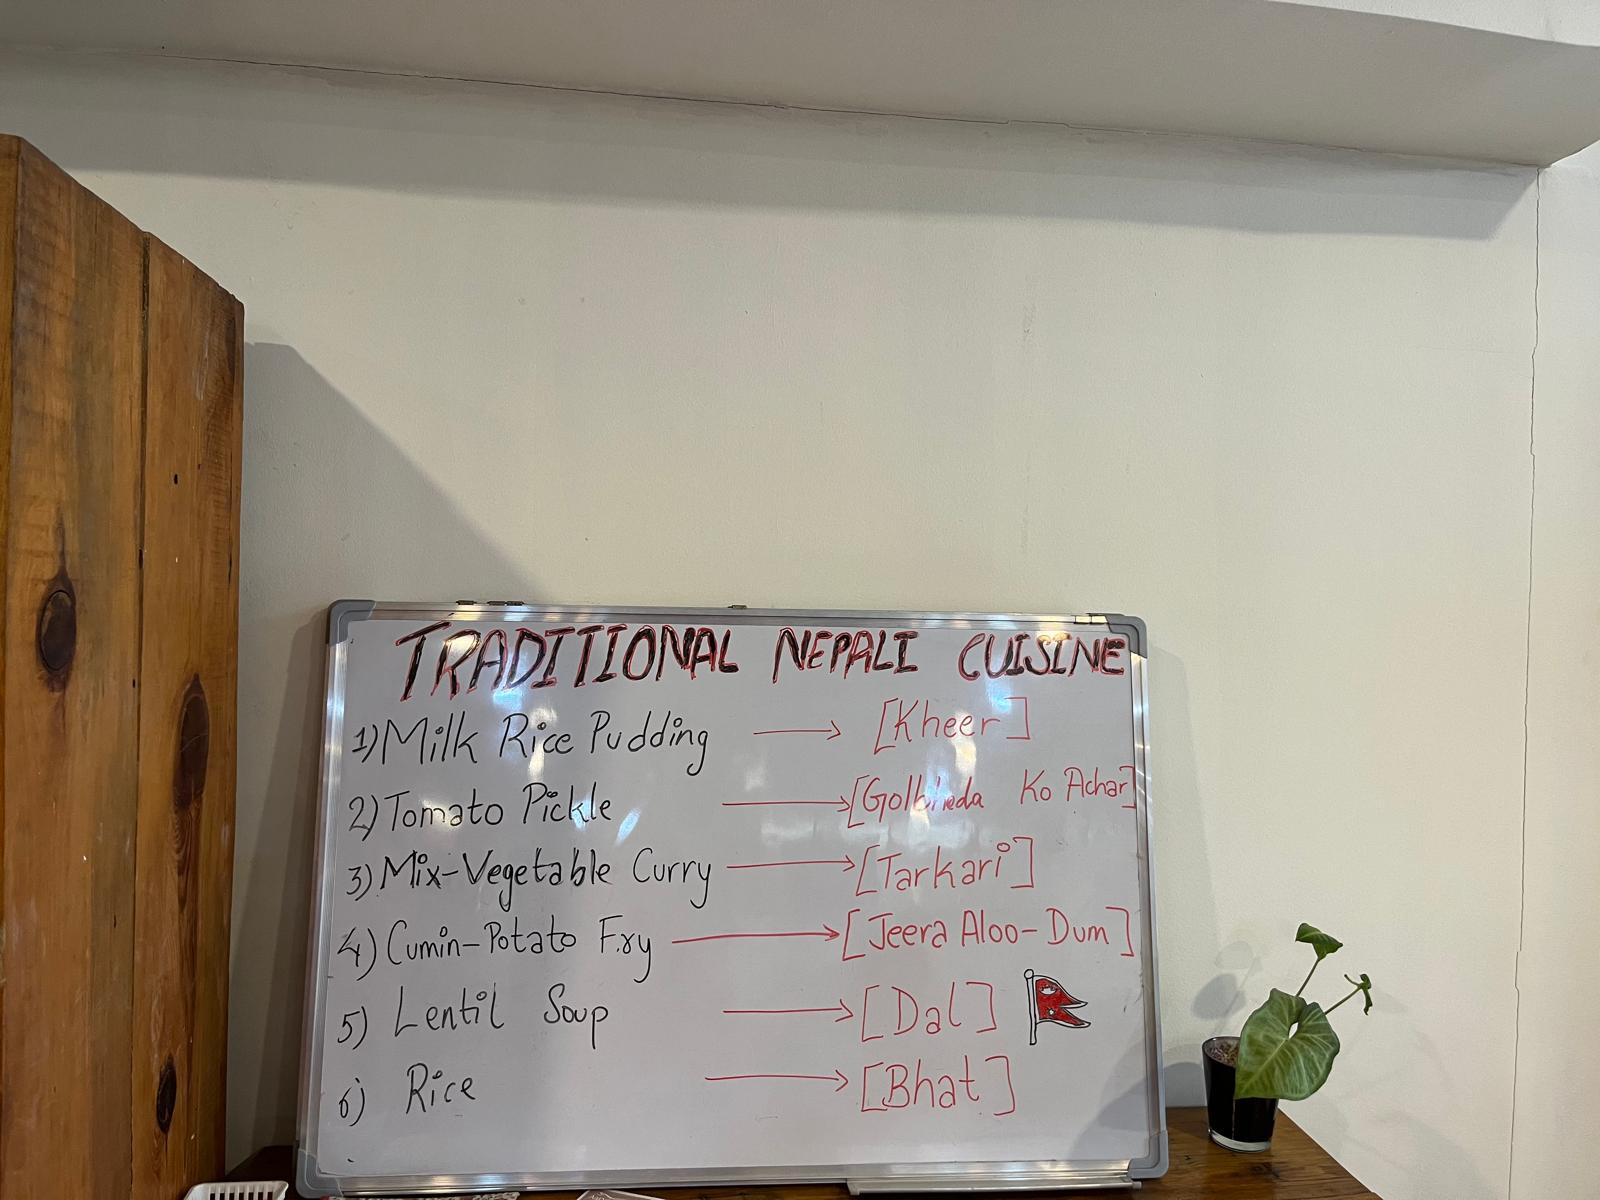 TRADITIONAL NEPALI CUISINE
1) Milk Rice Pudding → [Kheer]
2) Tomato Pickle → [Golbheda Ko Achar]
3) Mix-Vegetable Curry → [Tarkari]
4) Cumin-Potato Fry → [Jeera Aloo-Dum]
5) Lentil Soup → [Dal]
6) Rice → [Bhat]